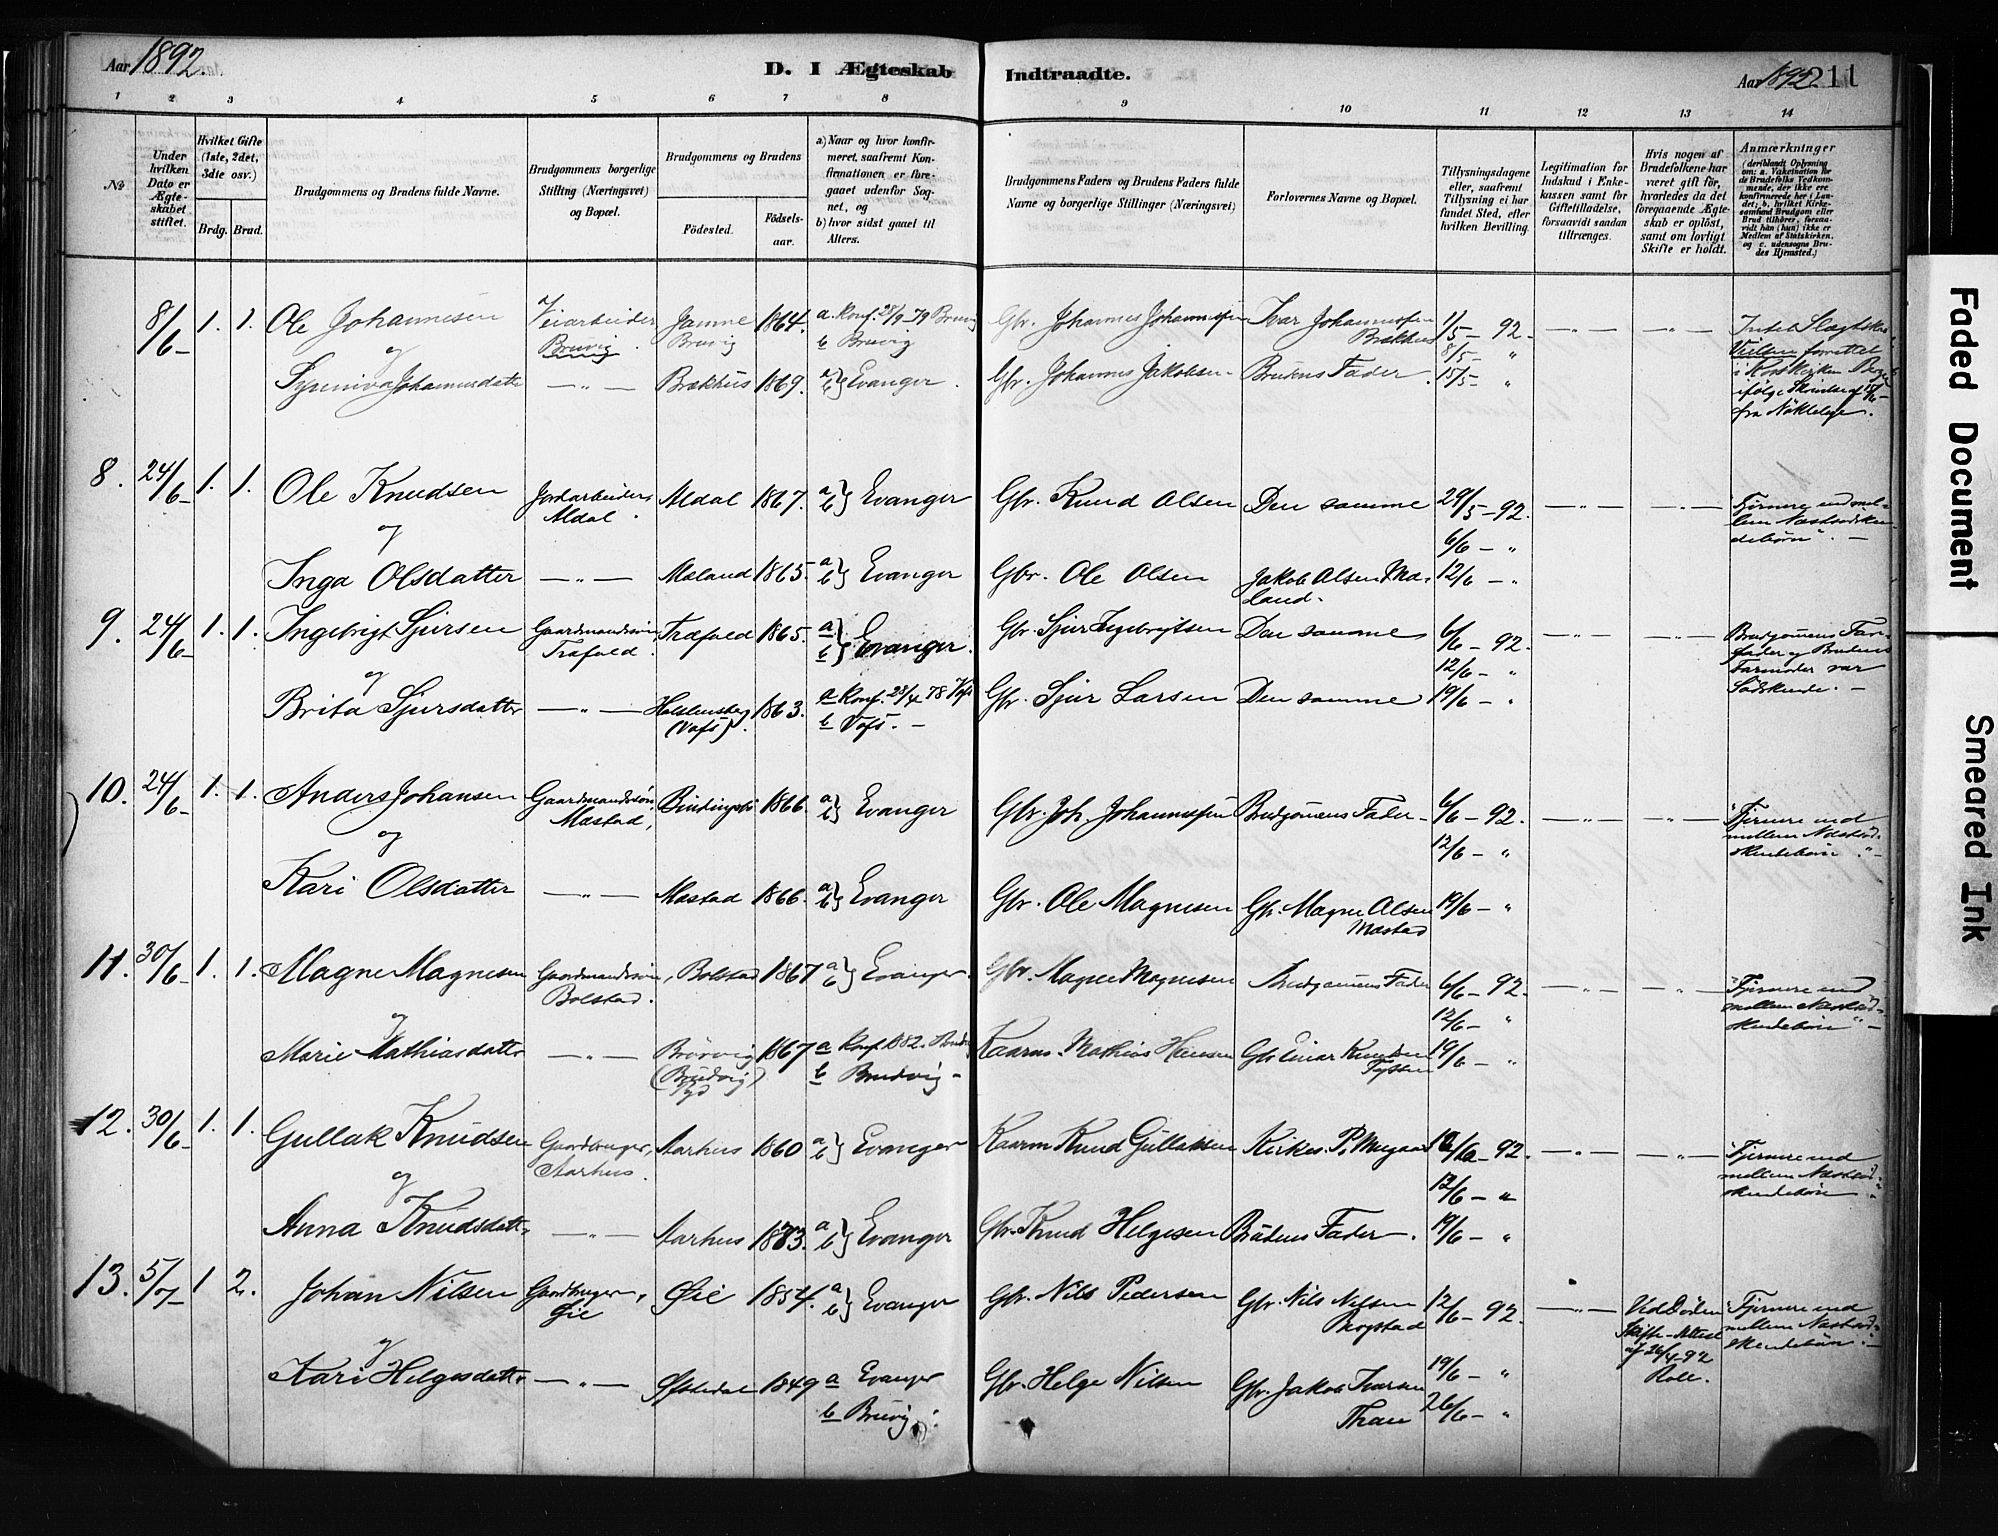 Aar 1892.
D. I Ægteskab Indtraadte.
Aar 1892. 211
1 2 3 4 5 6 7 8 9 10 11 12 13 14
No
Under hvilken Dato er Ægteskabet stiftet.
Hvilket Gifte (1ste, 2det, 3die osv.)
Brdg. Brud.
Brudgommens og Brudens fulde Navne.
Brudgommens borgerlige Stilling (Næringsvei) og Bopæl.
Brudgommens og Brudens
Födested. Födselsaar.
a) Naar og hvor konfirmeret, saafremt Konfirmationen er foregaaet udenfor Sognet, og
b) hvor sidst gaaet til Alters.
Brudgommens Faders og Brudens Faders fulde Navne og borgerlige Stillinger (Næringsvei)
Forlovernes Navne og Bopæl.
Tillysningsdagene eller, saafremt Tillysning ei har fundet Sted, efter hvilken Bevilling.
Legitimation for Indskud i Enkekassen samt for Giftetilladelse, forsaavidt saadan tiltrænges.
Hvis nogen af Brudefolkene har været gift för, hvorledes da det foregaaende Ægteskab er oplöst, samt om lovligt Skifte er holdt.
Anmærkninger
(deriblandt Oplysning om: a. Vakcination for de Brudefolks Vedkommende, der ikke ere konfirmerede her i Landet; b. hvilket Kirkesamfund Brudgom eller Brud tilhörer, forsaavidt han (hun) ikke er Medlem af Statskirken og c. udensogns Brudes Hjemsted.)
8/6 1. 1. Ole Johannesen Veiarbeider Bruvig. Jamne Bruvig 1864. a. Konf. 28/9 79 Bruvig b Bruvig Gbr. Johannes Johannessen Ivar Johannessen Brækhus 1/5 - 92. 8/5 - "
og
Synniva Johannesdatter — " — Brækhus 1869. a b} Evanger. Gbr. Johannes Jakobsen Brudens Fader. 15/5 - "
Intet Slægtskab
Vielsen forrettet
i Korskirken Bergen
fra Nökleby.
8. 24/6 1. 1. Ole Knudsen Jordarbeider Aldal. Aldal 1867. a b} Evanger Gbr. Knud Olsen Den samme 29/5 - 92. — " — — " — "Fjernere end mellem Næstsödskendebörn". —
og 6/6 - "
Inga Olsdatter — " — Mæland 1865. a b} Evanger Gbr. Ole Olsen Jakob Olsen Mæland. 12/6 - "
9. 24/6 1. 1. Ingebrigt Sjursen Gaardmandssön Træfald. Træfald 1865. a b} Evanger. Gbr. Sjur Ingebrigtsen Den samme 6/6 - 92. — " — — " — Brudgomens Farfader og Brudens Farmoder var Södskende. —
og 12/6 - "
Brita Sjursdatter — " — (Voss). 1863. a Konf. 28/4 78 Voss b Voss. — Gbr. Sjur Larsen Den samme 19/6 - "
10. 24/6 1. 1. Anders Johansen Gaardmandssön Mæstad. 1866. a b} Evanger Gbr. Joh. Johannessen Brudgomens Fader — 6/6 - 92. — " — — " — "Fjernere end mellem Næstsödskendebörn". —
og 12/6 - "
Kari Olsdatter — " — Mæstad 1866. a b} Evanger Gbr. Ole Magnesen Gbr. Magne Olsen Mæstad 19/6 - "
11. 30/6 1. 1. Magne Magnesen Gaardmandssön, Bolstad. Bolstad 1867 a b} Evanger. Gbr. Magne Magnesen Brudgomens Fader 6/6 - 92. — " — — " — "Fjernere end mellem Næstsödskendebörn" —
og 12/6 - "
Marie Mathiasdatter — " — (Brudvig) 1867 a Konf. 1882. b Brudvig — Kaarm. Mathias Hansen Gbr. Einar Knudsen 19/6 - "
12. 30/6 1. 1. Gullak Knudsen Gaardbruger, Aarhus. Aarhus 1860 a b} Evanger Kaarm Knud Gullaksen Kirkes. P. 6/6 - 92. — " — — " — "Fjernere end mellem Næstsödskendebörn".
og 12/6 - "
Anna Knudsdatter — " — Aarhus 1873. a b} Evanger Gbr. Knud Helgesen Brudens Fader. 19/6 - "
13. 5/7 1 2. Johan Nilsen Gaardbruger, Øie Øie 1854. a b} Evanger Gbr. Nils Pedersen Gbr. Nils Nilsen 12/6 - 92. — " — Ved Döden Skifte-Attest af 26/4 92 "Fjernere end mellem Næstsödskendebörn". —
og
Kari Helgesdatter — " — 1849 a Evanger b Bruvig. Gbr. Helge Nilsen Gbr. Jakob Ivarsen Thau 19/6 - " 26/6 - "
Faded Document
Smeared Ink